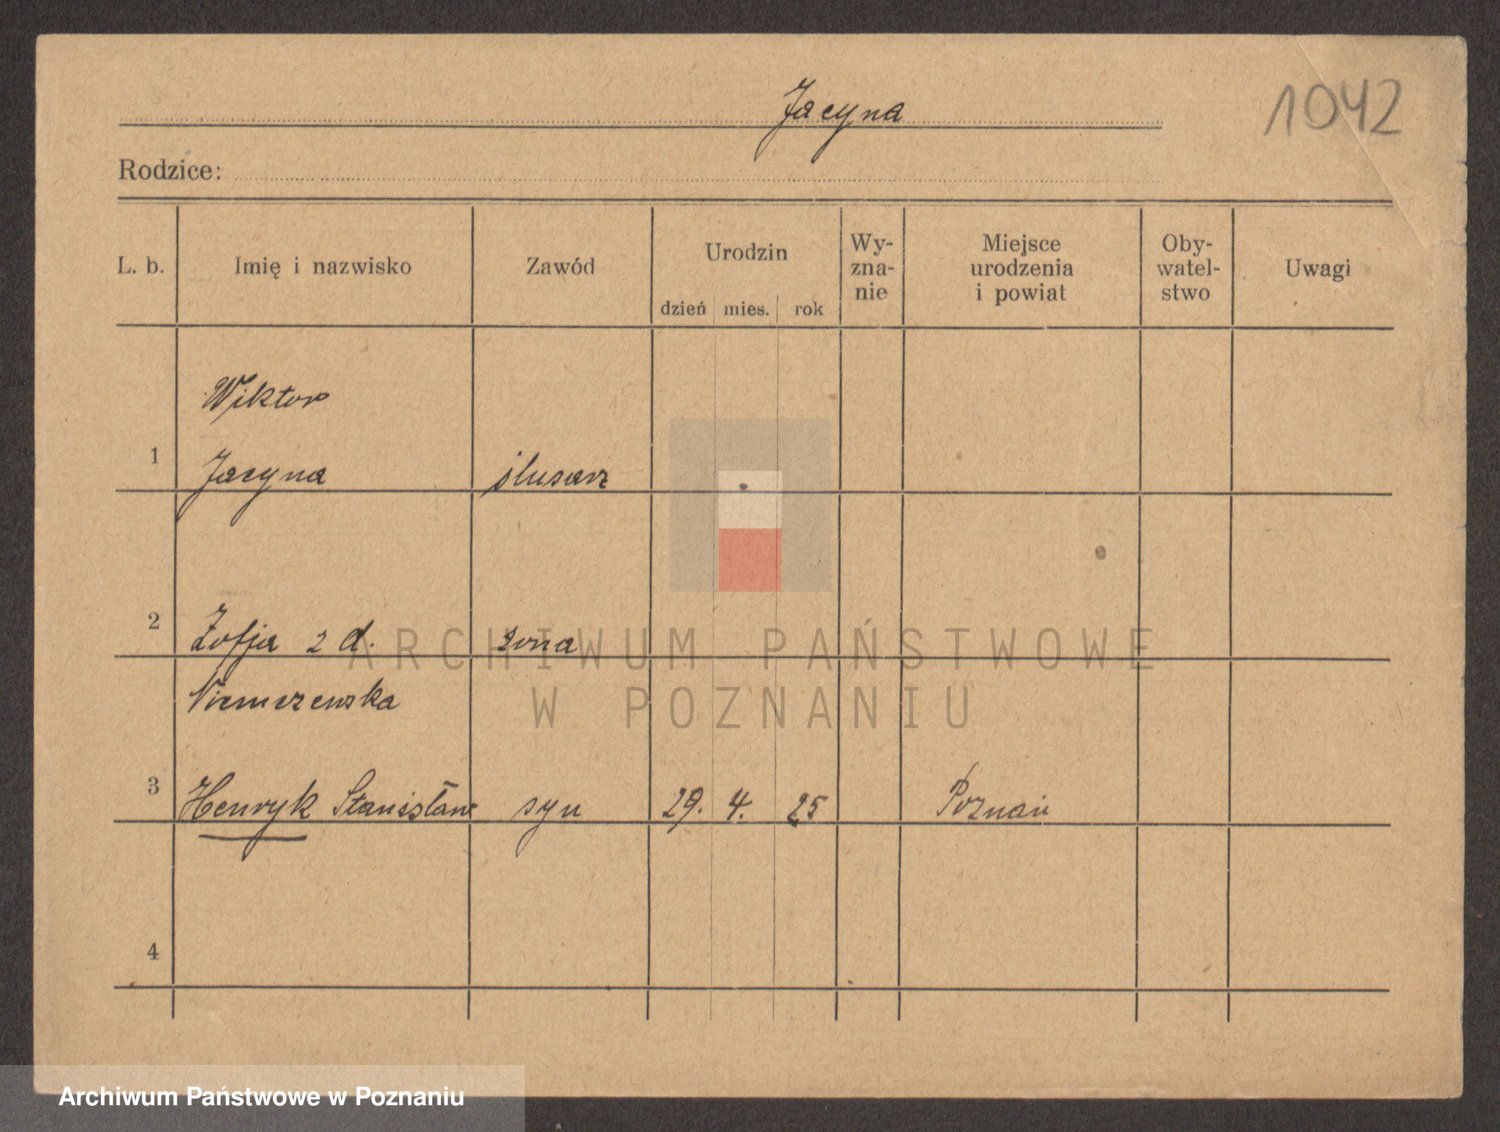 Jacyna
1042
Rodzice:
L. b.
Imię i nazwisko
Zawód
Urodzin
dzień mies. rok
Wy-
zna-
nie
Miejsce
urodzenia
i powiat
Oby-
watel-
stwo
Uwagi
Wiktor
1 Jacyna ślusarz
2 Zofja 2 d. żona
3 Henryk Stanisław syn 29. 4. 25 Poznań
4
ARCHIWUM PAŃSTWOWE
W POZNANIU
Archiwum Państwowe w Poznaniu